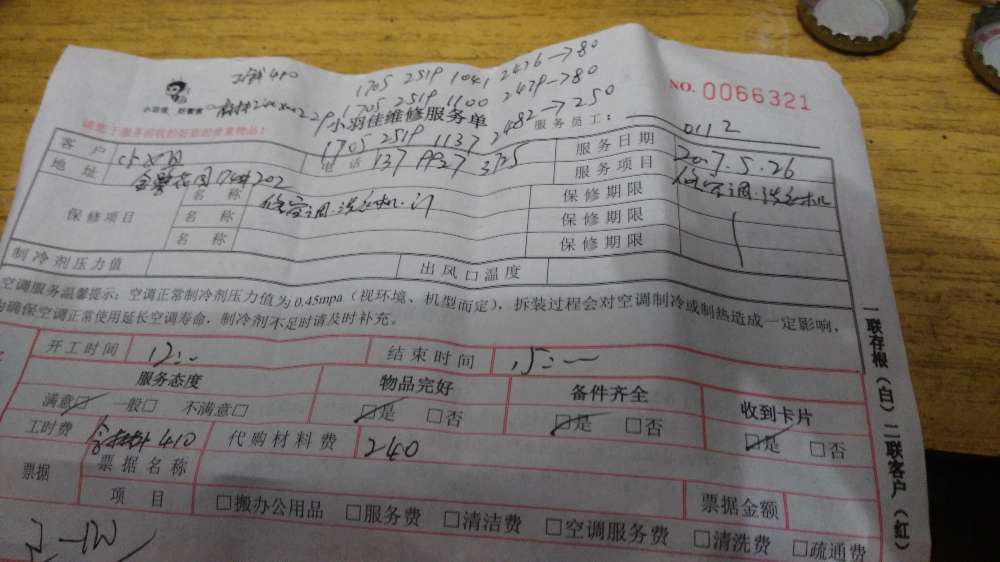 410
1705 2519 1041 2476→80
1705 2519 1100 2479→80
1705 2519 1137 2482→250
NO. 0066321
小羽佳 好管家
小羽佳维修服务单
服务员工: 0112
客户 电话 137 3725
服务日期 2017.5.26
地址 702
服务项目 修空调.洗衣机
保修项目 名称 修空调.洗衣机.门 保修期限
名称 保修期限
名称 保修期限
制冷剂压力值 出风口温度
空调服务温馨提示:空调正常制冷剂压力值为0.45mpa(视环境、机型而定),拆装过程会对空调制冷或制热造成一定影响,
为确保空调正常使用延长空调寿命,制冷剂不足时请及时补充。
开工时间 12:- 结束时间 15:-
服务态度 物品完好 备件齐全 收到卡片
满意□ 一般□ 不满意□ □是 □否 □是 □否 □是 □否
工时费 410 代购材料费 240
票据 票据名称
项目 □搬办公用品 □服务费 □清洁费 □空调服务费 □清洗费 □疏通费
票据金额
一联存根(白) 二联客户(红)